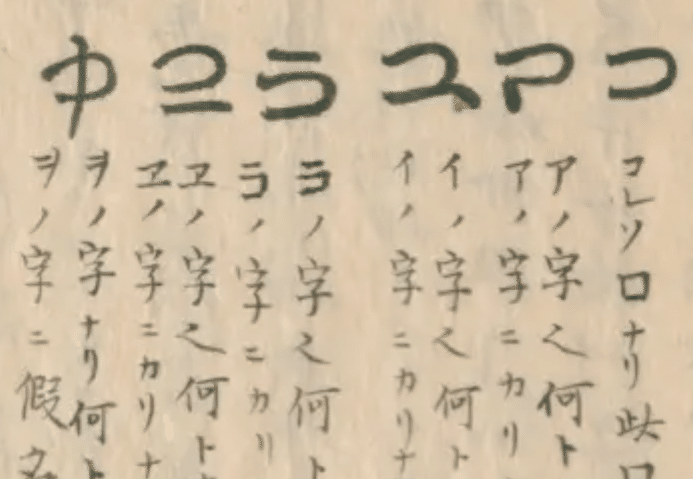 コ
コレソロナリ此口
ア
アノ字也何ト
アノ字ニカリ
ユ
イノ字也何ト
イノ字ニカリナ
ラ
ラノ字也何ト
ラノ字ニカリ
ヱノ字也何ト
ヱノ字ニカリナ
中
ヲノ字ナリ何ト
ヲノ字ニ假名